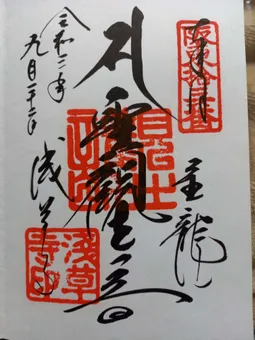 奉拝
坂東十三番
金龍山
聖観世音
浅草寺
浅草寺印
令和二年
九月二十二日